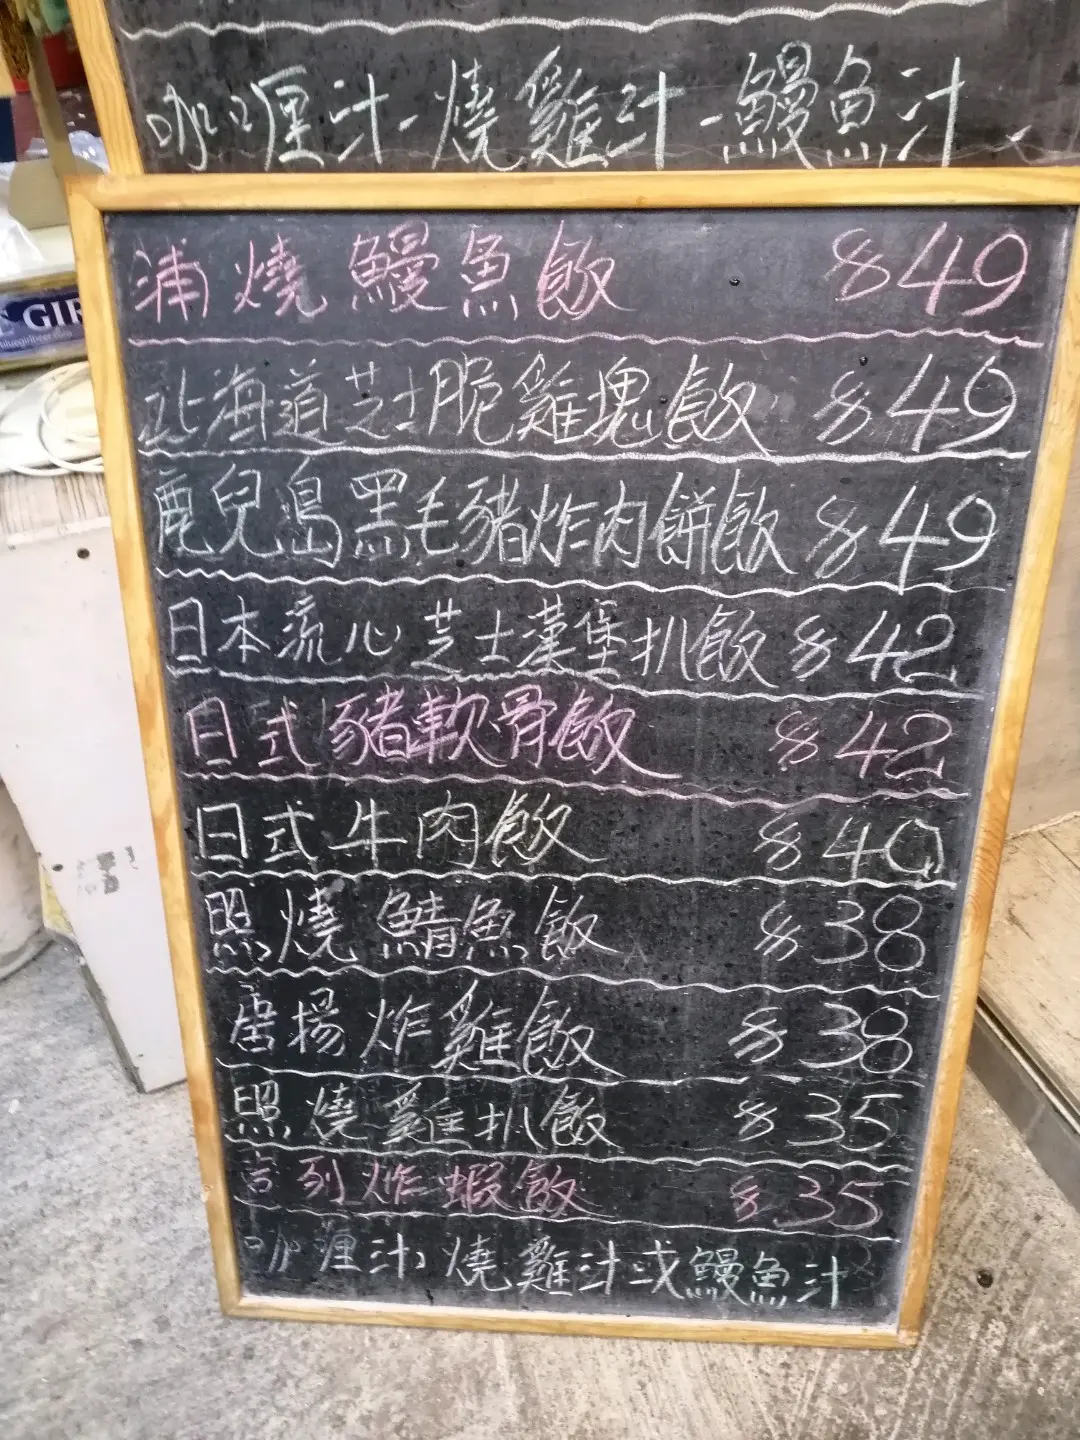 咖喱汁-燒雞汁-鰻魚汁
GIR
浦燒鰻魚飯 $49
北海道芝士脆雞塊飯 $49
鹿兒島黑毛豬炸肉餅飯 $49
日本流心芝士漢堡扒飯 $42
日式豬軟骨飯 $42
日式牛肉飯 $40
照燒鯖魚飯 $38
唐揚炸雞飯 $38
照燒雞扒飯 $35
吉列炸蝦飯 $35
咖喱汁,燒雞汁或鰻魚汁